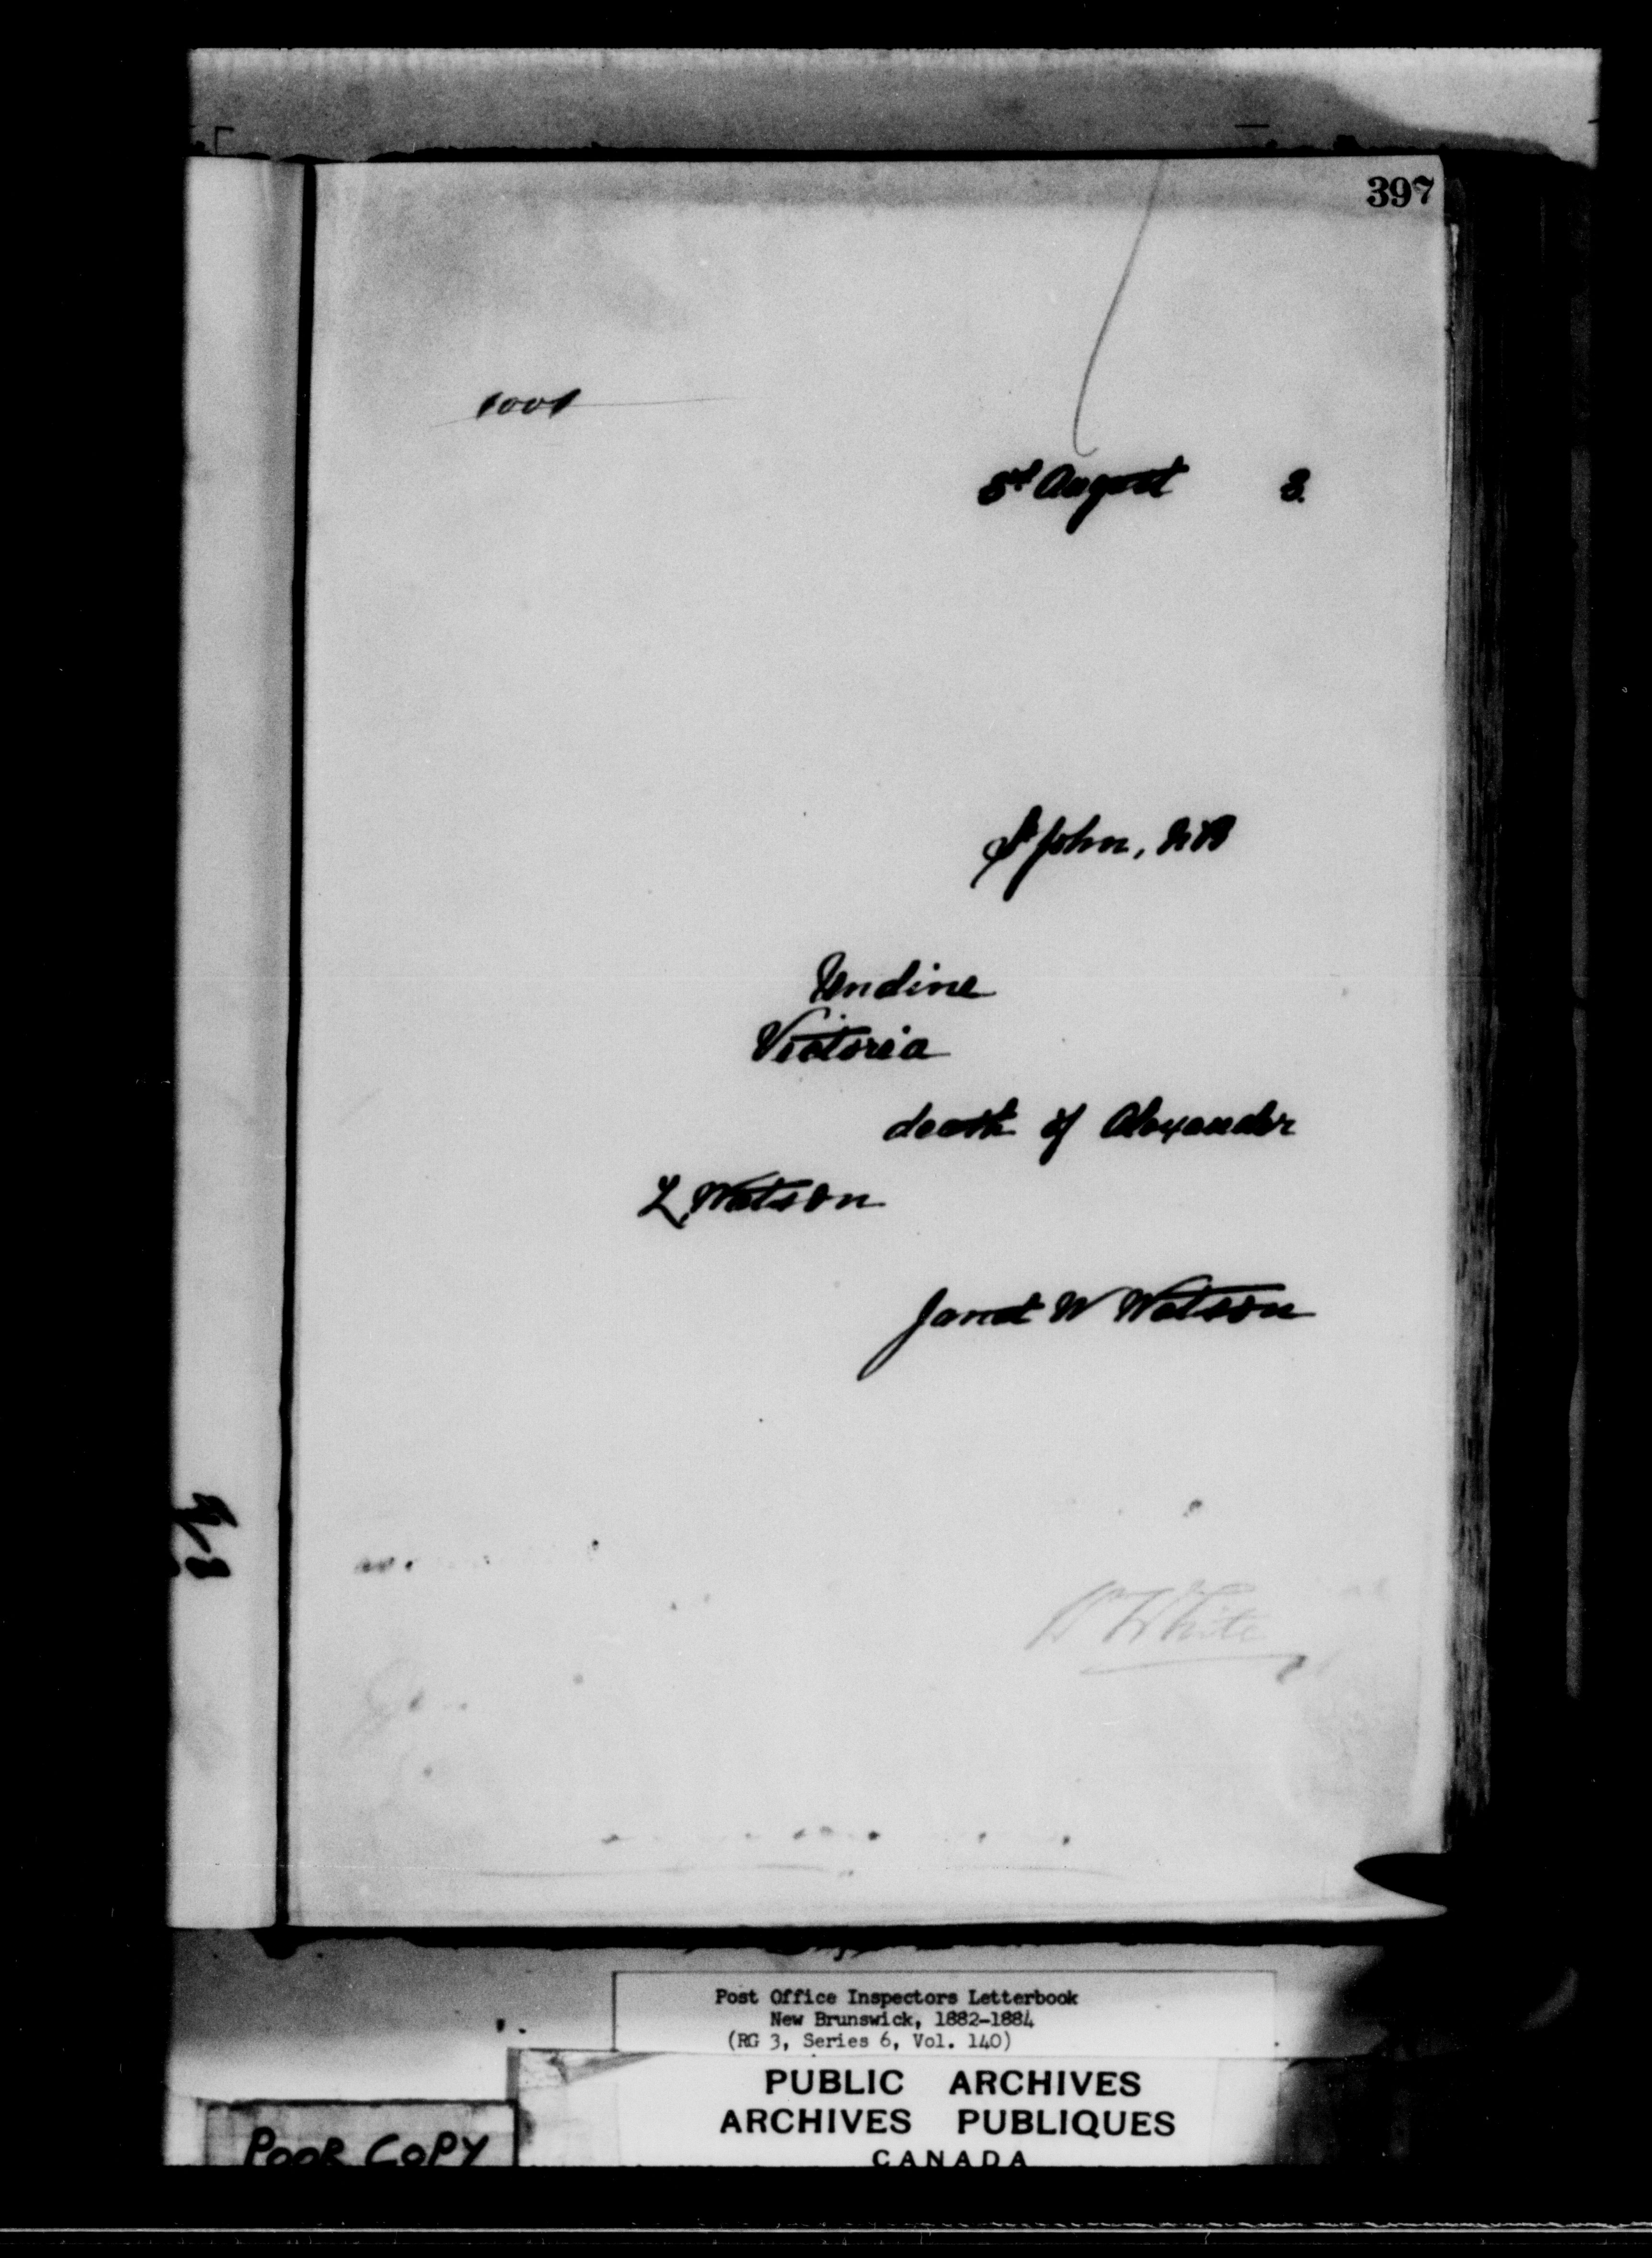 397
1001
3rd August 3.
St John, NB
Undine
Victoria
death of Alexander
L. Watson
Janet W Watson
W White
Post Office Inspectors Letterbook
New Brunswick, 1882-1884
(RG 3, Series 6, Vol. 140)
PUBLIC ARCHIVES
ARCHIVES PUBLIQUES
CANADA
POOR COPY